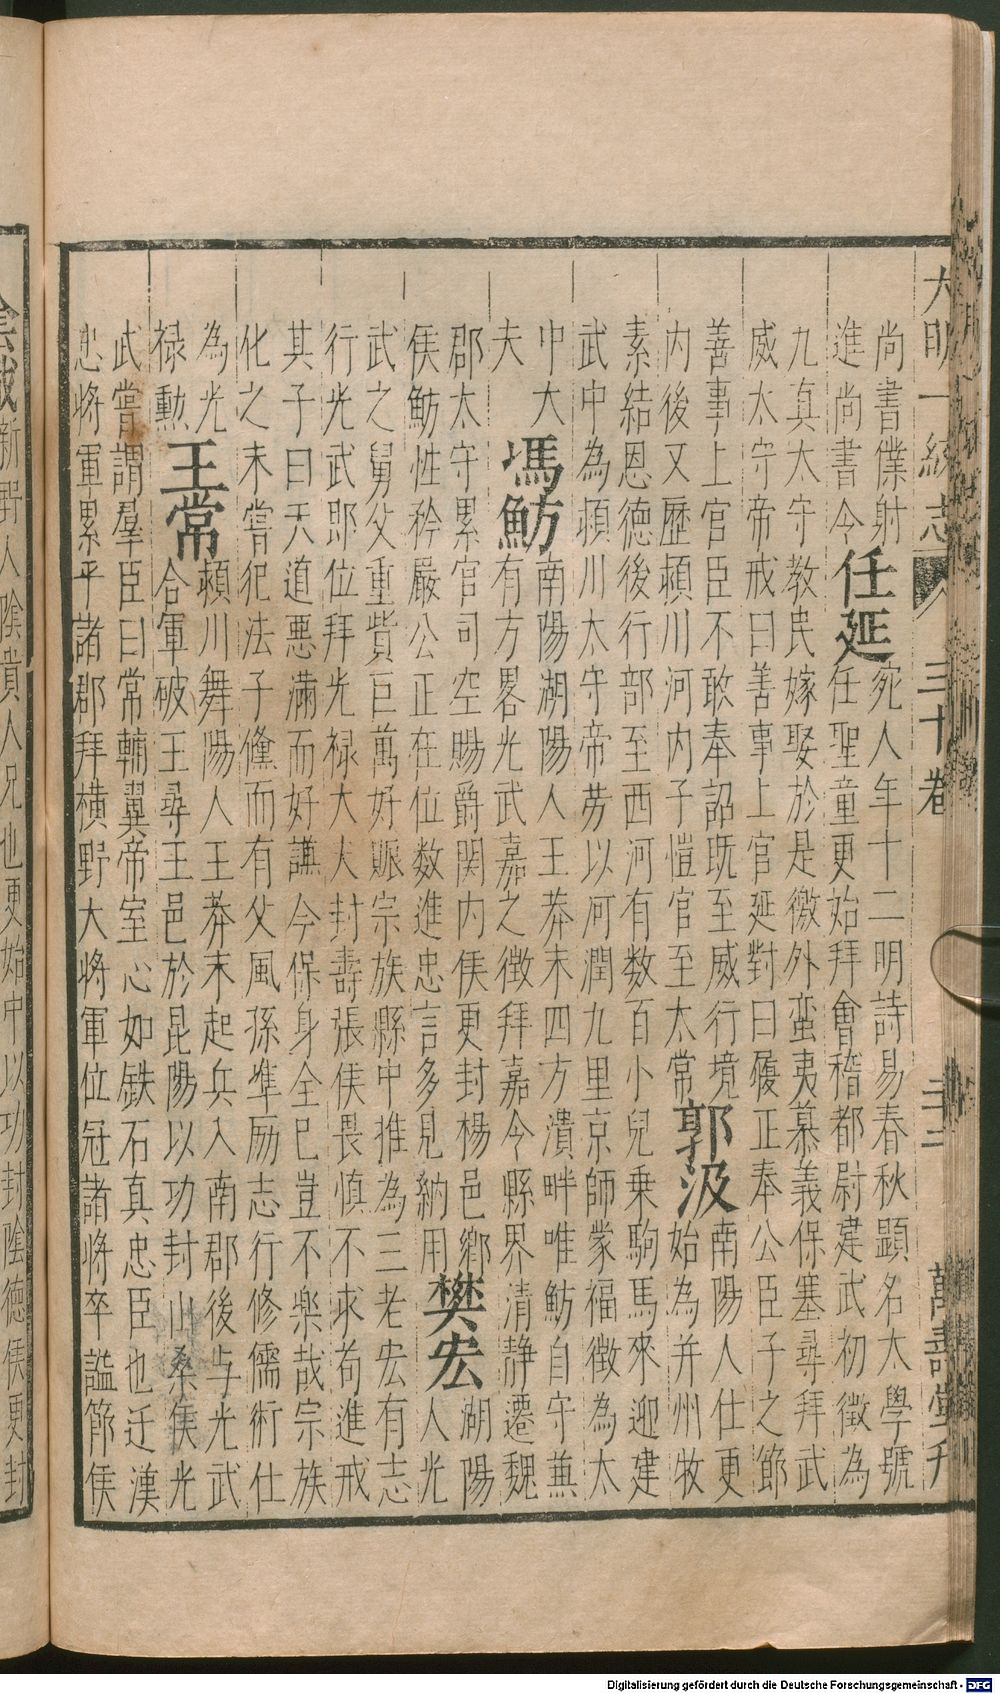 大明一統志 三十卷 三二 萬壽堂刊
尚書僕射
進尚書令
任延
宛人年十二明詩易春秋顕名太學號
任聖童更始拜會稽都尉建武初徵為
九真太守教民嫁娶於是徼外蛮夷慕義保塞尋拜武
威太守帝戒曰善事上官延對曰履正奉公臣子之節
善事上官臣不敢奉詔既至威行境
内後又歷頴川河内子愷官至太常
郭汲
南陽人仕更
始為并州牧
素結恩德後行部至西河有数百小兒乗駒馬來迎建
武中為頴川太守帝劳以河潤九里京師蒙福徵為太
中大
夫
馮魴
南陽湖陽人王莽末四方潰畔唯魴自守兼
有方畧光武嘉之徵拜嘉今縣界清静遷魏
郡太守累官司空賜爵関内侯更封楊邑鄉
侯魴性矜嚴公正在位数進忠言多見納用
樊宏
湖陽
人光
武之舅父重貲巨萬好賑宗族縣中推為三老宏有志
行光武即位拜光禄大夫封壽張侯畏慎不求苟進戒
其子曰天道悪滿而好謙今保身全已豈不楽哉宗族
化之未嘗犯法子儵而有父風孫準励志行修儒術仕
為光
禄勲
王常
頴川舞陽人王莽末起兵入南郡後与光武
合軍破王尋王邑於昆陽以功封山桑侯光
武嘗謂羣臣曰常輔翼帝室心如鉄石真忠臣也迁漢
忠将軍累平諸郡拜横野大将軍位冠諸将卒謚節侯
陰識
新野人陰貴人兄也更始中以功封陰德侯更封
Digitalisierung gefördert durch die Deutsche Forschungsgemeinschaft - DFG